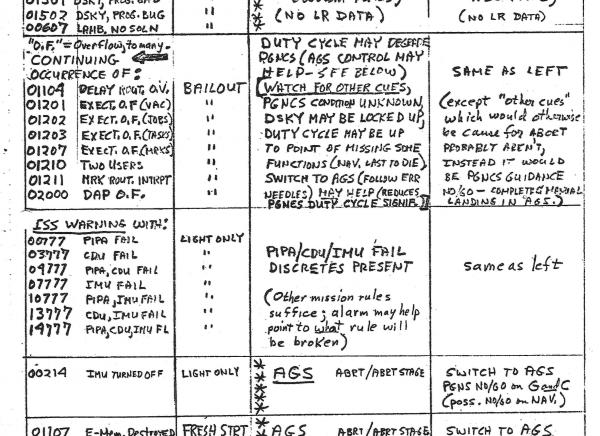 01502 DSKY, PROG. BUG
(NO LR DATA)
(NO LR DATA)
00607 LAMB, NO SOLN
"O.F." = Overflow, too many.
CONTINUING
OCCURRENCE OF:
01104 DELAY ROUT. O.V. BAILOUT
01201 EXECT. O.F. (VAC) "
01202 EXECT. O.F. (JOBS) "
01203 EXECT. O.F. (TASKS) "
01207 EXECT. O.F. (MRKS) "
01210 TWO USERS "
01211 MRK ROUT. INTRPT "
02000 DAP O.F. "
DUTY CYCLE MAY DEGRADE
PGNCS (AGS CONTROL MAY
HELP - SEE BELOW)
WATCH FOR OTHER CUES,
PGNCS CONDITION UNKNOWN,
DSKY MAY BE LOCKED UP,
DUTY CYCLE MAY BE UP
TO POINT OF MISSING SOME
FUNCTIONS (NAV. LAST TO DIE).
SWITCH TO AGS (FOLLOW ERR
NEEDLES) MAY HELP (REDUCES
PGNCS DUTY CYCLE SIGNIF.)
SAME AS LEFT
(except "other cues"
which would otherwise
be cause for ABORT
PROBABLY AREN'T,
INSTEAD IT WOULD
BE PGNCS GUIDANCE
NO/GO - COMPLETE MANUAL
LANDING IN AGS.)
ISS WARNING WITH:
00777 PIPA FAIL LIGHT ONLY
03777 CDU FAIL "
04777 PIPA, CDU FAIL "
07777 IMU FAIL "
10777 PIPA, IMU FAIL "
13777 CDU, IMU FAIL "
14777 PIPA, CDU, IMU FL "
PIPA/CDU/IMU FAIL
DISCRETES PRESENT
(Other mission rules
suffice; alarm may help
point to what rule will
be broken)
same as left
00214 IMU TURNED OFF LIGHT ONLY
AGS ABRT/ABRT STAGE
SWITCH TO AGS
PGNS NO/GO on G and C
(poss. NO/GO ON NAV.)
01107 E-Mem. Destroyed FRESH STRT AGS ABRT/ABRT STAGE SWITCH TO AGS